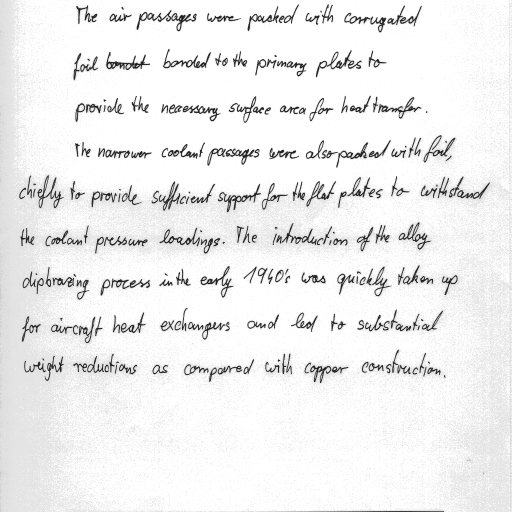 The air passages were packed with corrugated
foil bonded to the primary plates to
provide the necessary surface area for heat transfer.
The narrower coolant passages were also packed with foil,
chiefly to provide sufficient support for the flat plates to withstand
the coolant pressure loadings. The introduction of the alloy
dipbrazing process in the early 1940's was quickly taken up
for aircraft heat exchangers and led to substantial
weight reductions as compared with copper construction.